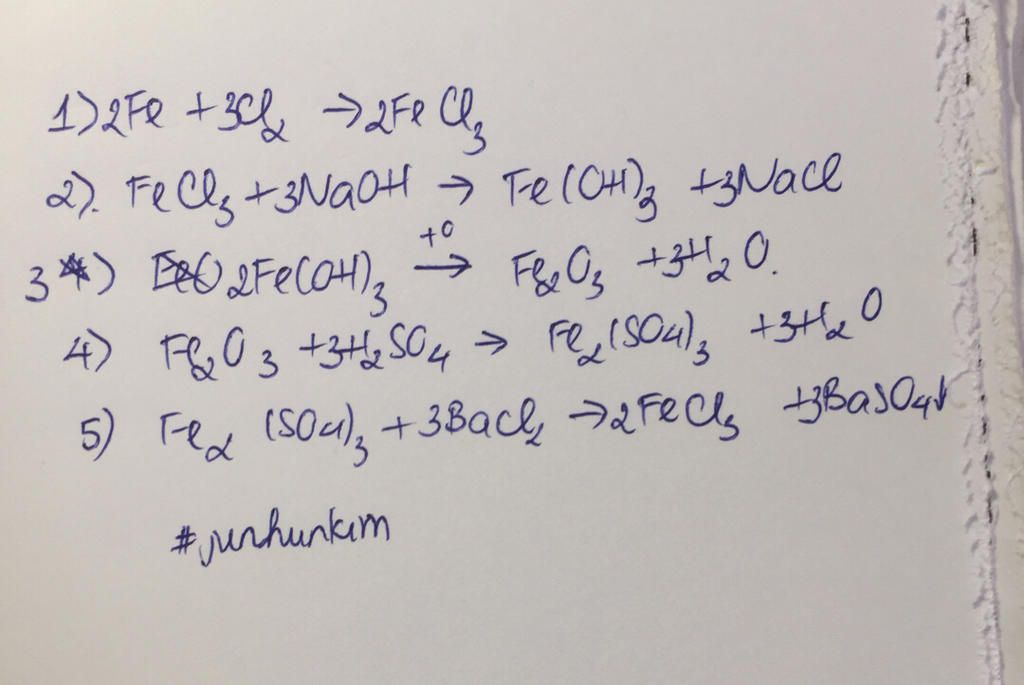 1) 2Fe + 3Cl₂ → 2FeCl₃
2). FeCl₃ + 3NaOH → Fe(OH)₃ + 3NaCl
3) 2Fe(OH)₃ →(+0) Fe₂O₃ + 3H₂O.
4) Fe₂O₃ + 3H₂SO₄ → Fe₂(SO₄)₃ + 3H₂O
5) Fe₂(SO₄)₃ + 3BaCl₂ → 2FeCl₃ + 3BaSO₄↓
#junhunkim